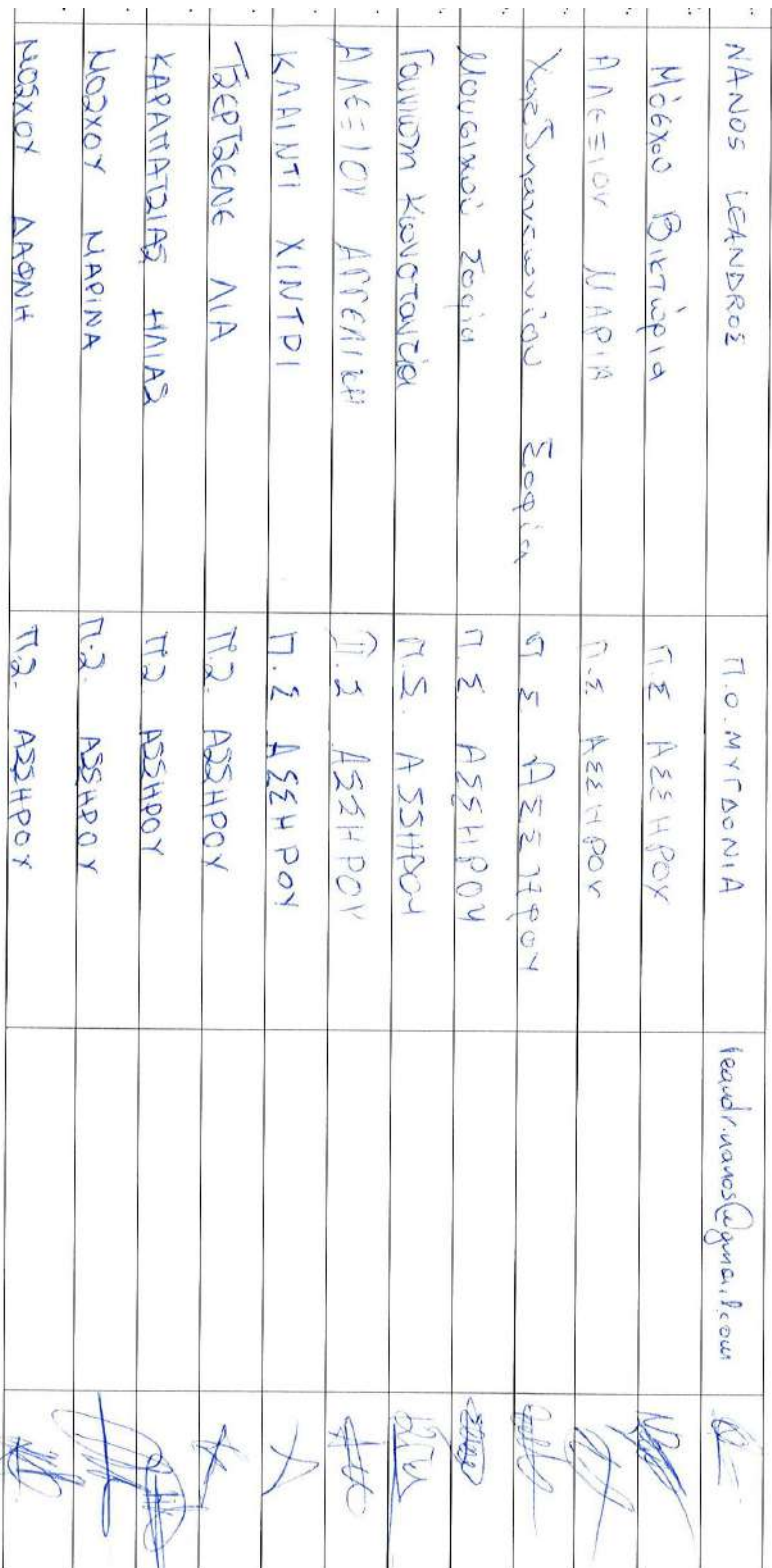 NANOS LEANDROΣ Π.Ο. ΜΥΓΔΟΝΙΑ leandr.nanos@gmail.com
Μόσχου Βικτώρια Π.Σ ΑΣΣΗΡΟΥ
ΑΛΕΞΙΟΥ ΜΑΡΙΑ Π.Σ ΑΣΣΗΡΟΥ
Σοφία Π Σ ΑΣΣΗΡΟΥ
Μουσικού Σοφία Π.Σ ΑΣΣΗΡΟΥ
Γουνιώτη Κωνσταντία Π.Σ. ΑΣΣΗΡΟΥ
ΑΛΕΞΙΟΥ ΑΓΓΕΛΙΚΗ Π.Σ ΑΣΣΗΡΟΥ
ΚΛΑΙΝΤΙ ΧΙΝΤΡΙ Π.Σ ΑΣΣΗΡΟΥ
ΤΣΕΡΤΣΕΝΕ ΛΙΑ Π.Σ. ΑΣΣΗΡΟΥ
ΚΑΡΑΠΑΤΣΙΑΣ ΗΛΙΑΣ Π.Σ ΑΣΣΗΡΟΥ
ΜΟΣΧΟΥ ΜΑΡΙΝΑ Π.Σ. ΑΣΣΗΡΟΥ
ΜΟΣΧΟΥ ΔΑΦΝΗ Π.Σ. ΑΣΣΗΡΟΥ